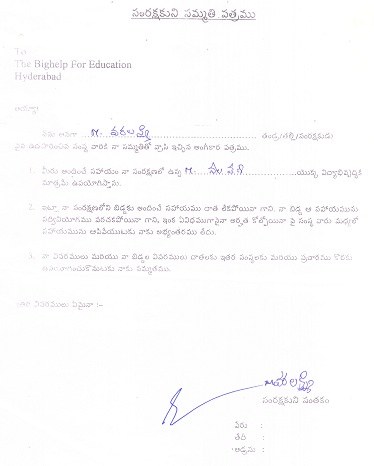 సంరక్షకుని సమ్మతి పత్రము
To
The Bighelp For Education
Hyderabad
అయ్యా!
నేను అనగా M. వరలక్ష్మి తండ్రి/తల్లి/సంరక్షకుడు
పైన ఉదహరించిన సంస్థ వారికి నా సమ్మతితో వ్రాసి ఇచ్చిన అంగీకార పత్రము.
1. మీరు అందించే సహాయం నా సంరక్షణలో ఉన్న M. యొక్క విద్యాభివృద్ధికి
మాత్రమే ఉపయోగిస్తాను.
2. ఇట్లూ నా సంరక్షణలోని బిడ్డకు అందించే సహాయము దాత లేకపోయినా గాని, నా బిడ్డ ఆ సహాయమును
సద్వినియోగము పరచకపోయినా గాని, ఇంక ఏవిధముగానైనా అర్హత కోల్పోయినా పై సంస్థ వారు మధ్యలో
సహాయమును ఆపివేయుటకు నాకు అభ్యంతరము లేదు.
3. నా వివరములు మరియు నా బిడ్డల వివరములు దాతలకు ఇతర సంస్థలకు మరియు ప్రచారము కొరకు
ఉపయోగించుకొనుటకు నాకు సమ్మతము.
ఇతర వివరములు ఏమైనా :-
వరలక్ష్మి
సంరక్షకుని సంతకం
పేరు :
తేది :
అడ్రసు :